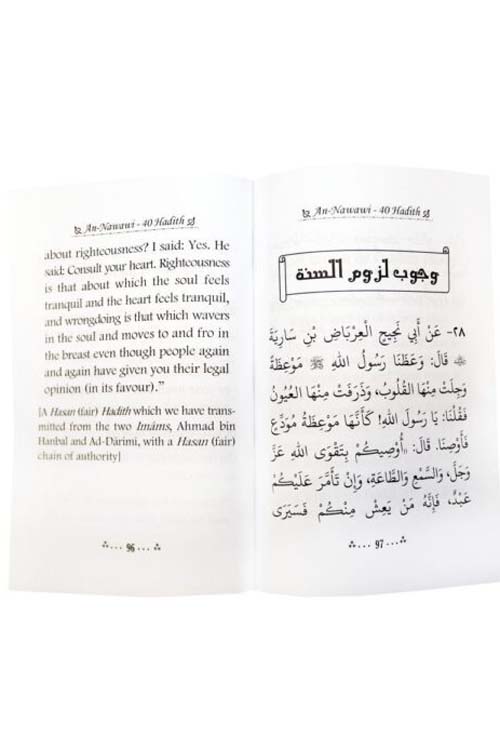 An-Nawawi - 40 Hadith
about righteousness? I said: Yes. He
said: Consult your heart. Righteousness
is that about which the soul feels
tranquil and the heart feels tranquil,
and wrongdoing is that which wavers
in the soul and moves to and fro in
the breast even though people again
and again have given you their legal
opinion (in its favour).”
[A Hasan (fair) Hadith which we have trans-
mitted from the two Imâms, Ahmad bin
Hanbal and Ad-Dârimi, with a Hasan (fair)
chain of authority]
... 96 ...
An-Nawawi - 40 Hadith
وجوب لزوم السنة
٢٨- عَنْ أَبِي نَجِيحٍ الْعِرْبَاضِ بْنِ سَارِيَةَ
ﷺ قَالَ: وَعَظَنَا رَسُولُ اللهِ ﷺ مَوْعِظَةً
وَجِلَتْ مِنْهَا الْقُلُوبُ، وَذَرَفَتْ مِنْهَا الْعُيُونُ
فَقُلْنَا: يَا رَسُولَ اللهِ! كَأَنَّهَا مَوْعِظَةُ مُوَدِّعٍ
فَأَوْصِنَا. قَالَ: «أُوصِيكُمْ بِتَقْوَى اللهِ عَزَّ
وَجَلَّ، وَالسَّمْعِ وَالطَّاعَةِ، وَإِنْ تَأَمَّرَ عَلَيْكُمْ
عَبْدٌ، فَإِنَّهُ مَنْ يَعِشْ مِنْكُمْ فَسَيَرَى
... 97 ...